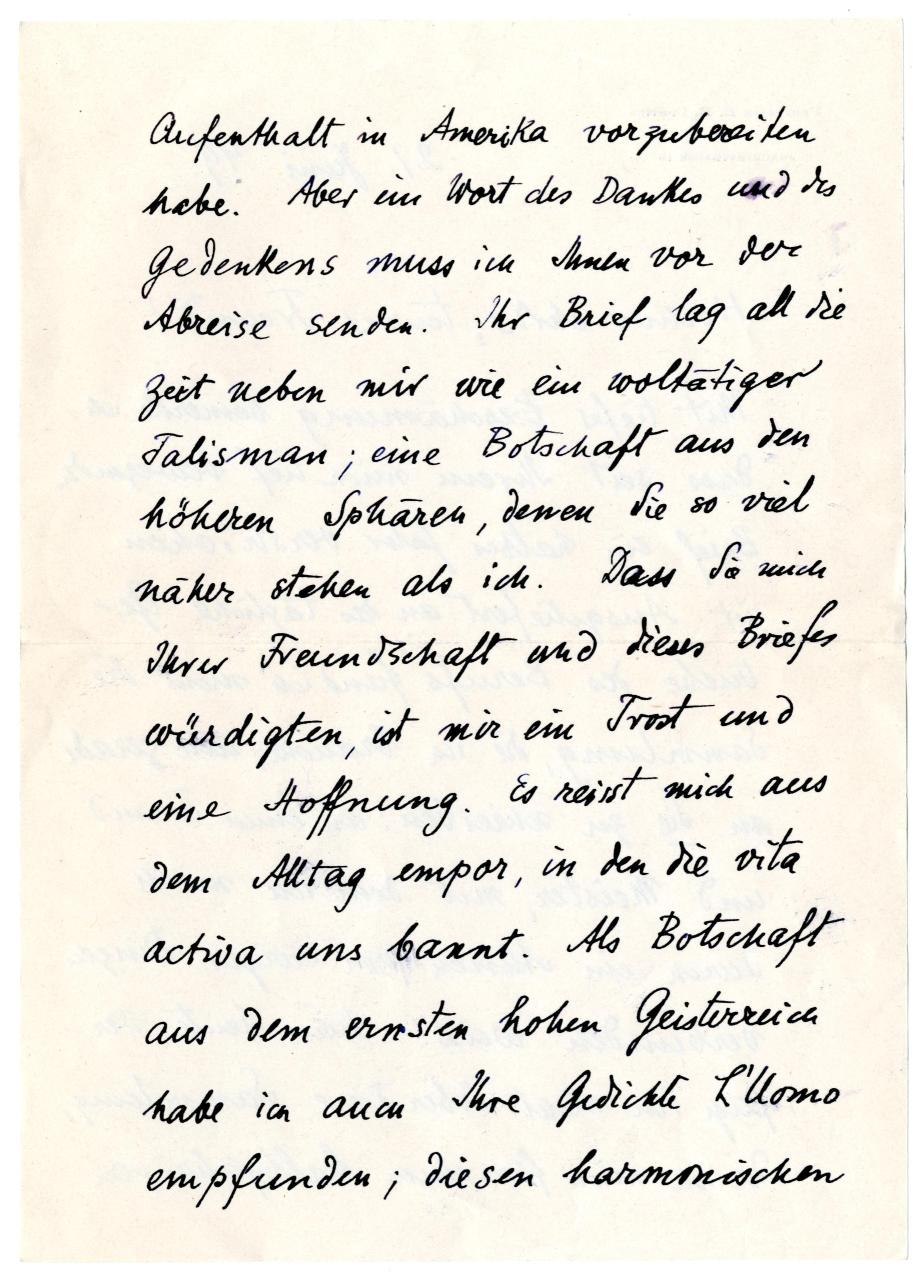 Aufenthalt in Amerika vorzubereiten
habe. Aber ein Wort des Dankes und des
Gedenkens muss ich Ihnen vor der
Abreise senden. Ihr Brief lag all die
Zeit neben mir wie ein woltätiger
Talisman; eine Botschaft aus den
höheren Sphären, denen Sie so viel
näher stehen als ich. Dass Sie mich
Ihrer Freundschaft und dieses Briefes
würdigten, ist mir ein Trost und
eine Hoffnung. Es reisst mich aus
dem Alltag empor, in den die vita
activa uns bannt. Als Botschaft
aus dem ernsten hohen Geisterreich
habe ich auch Ihre Gedichte L'Uomo
empfunden; diesen harmonischen